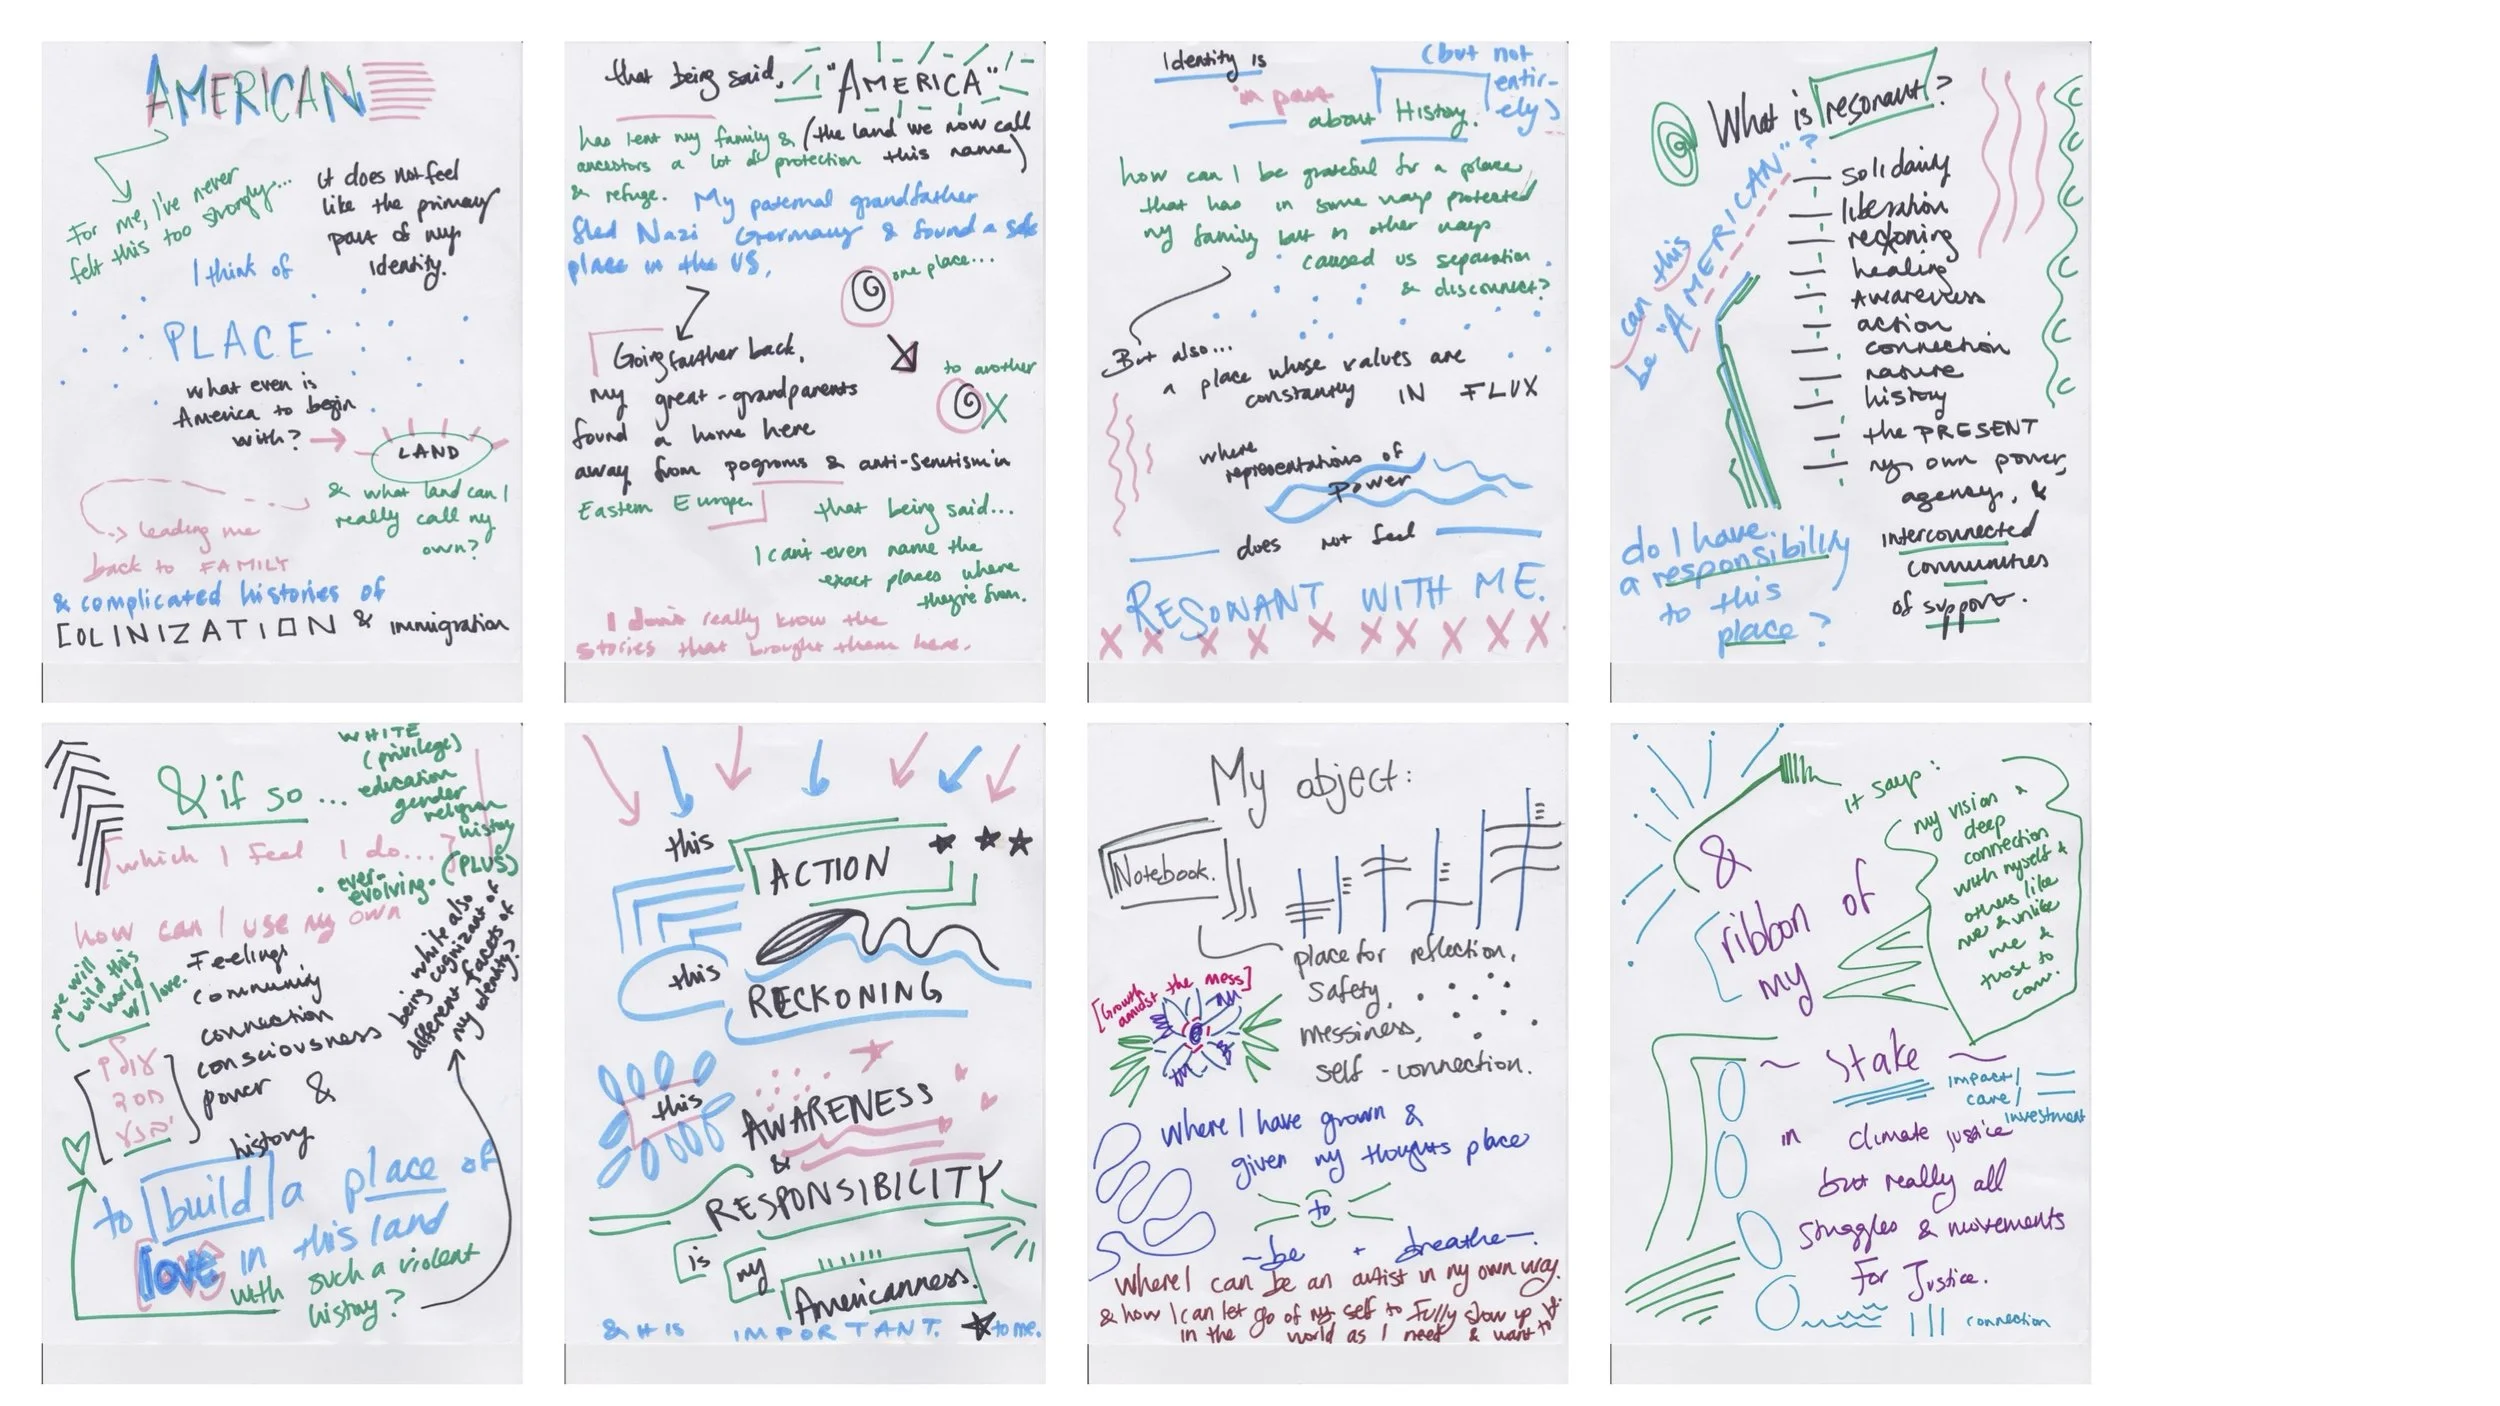 AMERICAN
For me, I've never
felt this too strongly...
it does not feel
like the primary
part of my
identity.
I think of
PLACE
what even is
America to begin
with?
LAND
& what land can I
really call my
own?
leading me
back to FAMILY
& complicated histories of
COLINIZATION & immigration
that being said, "AMERICA"
(the land we now call
this name)
has lent my family &
ancestors a lot of protection
& refuge. My paternal grandfather
fled Nazi Germany & found a safe
place in the US.
one place...
to another
Going farther back,
my great-grandparents
found a home here
away from pogroms & anti-semitism in
Eastern Europe.
that being said...
I can't even name the
exact places where
they're from.
I don't really know the
stories that brought them here.
Identity is
in part
about History.
(but not
entir-
ely)
how can I be grateful for a place
that has in some ways protected
my family but in other ways
caused us separation
& disconnect?
But also...
a place whose values are
constantly IN FLUX
where
representations of
power
does not feel
RESONANT WITH ME.
What is resonant?
can this
be "AMERICAN"?
solidarity
liberation
reckoning
healing
Awareness
action
connection
nature
history
the PRESENT
my own power,
agency, &
interconnected
communities
of support.
do I have
a responsibility
to this
place?
& if so...
WHITE
(privilege)
education
gender
religion
history
(PLUS)
which I feel I do...
ever-
evolving.
how can I use my own
Feelings
community
connection
consciousness
power &
history
while also
being cognizant of
different facets of
my identity?
(we will
build this
world
w/ love.
עולם
חסד
יבנה
to build a place of
love in this land
with such a violent
history?
this
ACTION
this
RECKONING
this
AWARENESS
&
RESPONSIBILITY
is my
Americanness.
& it is IMPORTANT. to me.
My object:
Notebook.
place for reflection,
safety,
messiness,
self-connection.
[Growth
amidst the mess]
where I have grown &
given my thoughts place
to
be + breathe
Where I can be an artist in my own way.
& how I can let go of my self to fully show up
in the world as I need & want to
&
ribbon of
my
it says:
my vision &
deep
connection
with myself &
others like
me & unlike
me &
those to
come.
Stake
impact/
care/
investment
in climate justice
but really all
struggles & movements
for Justice.
connection